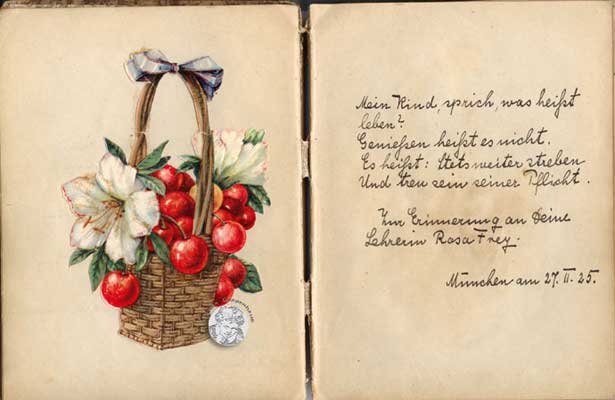 Mein Kind, sprich, was heißt
leben?
Genießen heißt es nicht.
Es heißt: Stets weiter streben
Und treu sein seiner Pflicht.
Zur Erinnerung an Deine
Lehrerin Rosa Frey.
München am 27. II. 25.